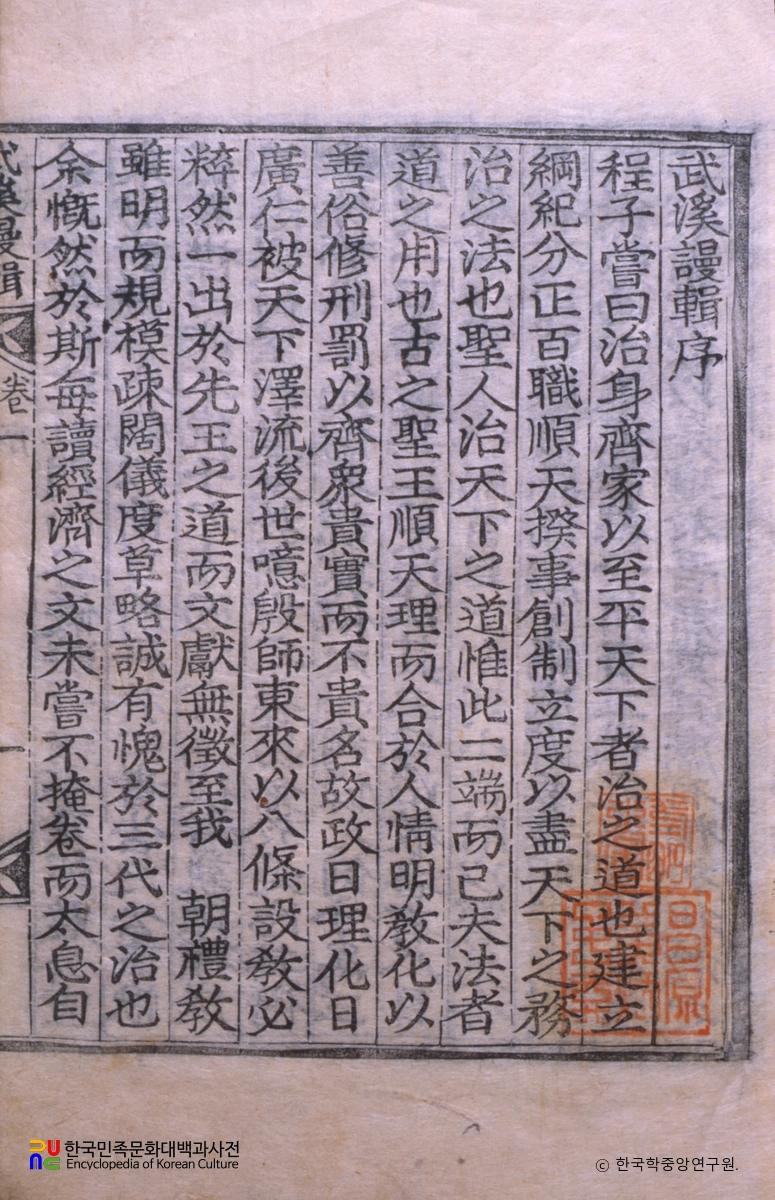 武溪謾輯序
程子嘗曰治身齊家以至平天下者治之道也建立
綱紀分正百職順天揆事創制立度以盡天下之務
治之法也聖人治天下之道惟此二端而已夫法者
道之用也古之聖王順天理而合於人情明敎化以
善俗修刑罰以齊衆貴實而不貴名故政日理化日
廣仁被天下澤流後世噫殷師東來以八條設敎必
粹然一出於先王之道而文獻無徵至我 朝禮敎
雖明而規模疎闊儀度草略誠有愧於三代之治也
余慨然於斯每讀經濟之文未嘗不掩卷而太息自
謾輯
卷一
한국민족문화대백과사전
Encyclopedia of Korean Culture
© 한국학중앙연구원.